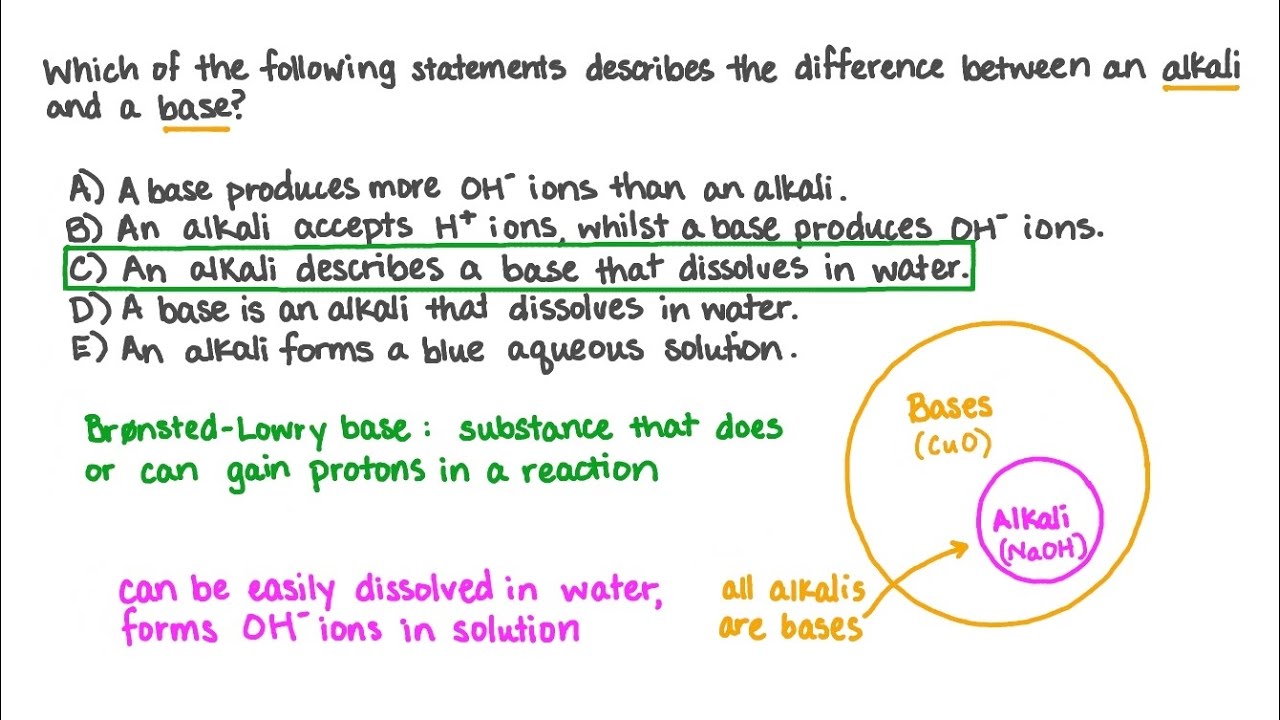 Which of the following statements describes the difference between an alkali
and a base?
A) A base produces more OH⁻ ions than an alkali.
B) An alkali accepts H⁺ ions, whilst a base produces OH⁻ ions.
C) An alkali describes a base that dissolves in water.
D) A base is an alkali that dissolves in water.
E) An alkali forms a blue aqueous solution.
Brønsted-Lowry base: substance that does
or can gain protons in a reaction
can be easily dissolved in water,
forms OH⁻ ions in solution
Bases
(CuO)
Alkali
(NaOH)
all alkalis
are bases